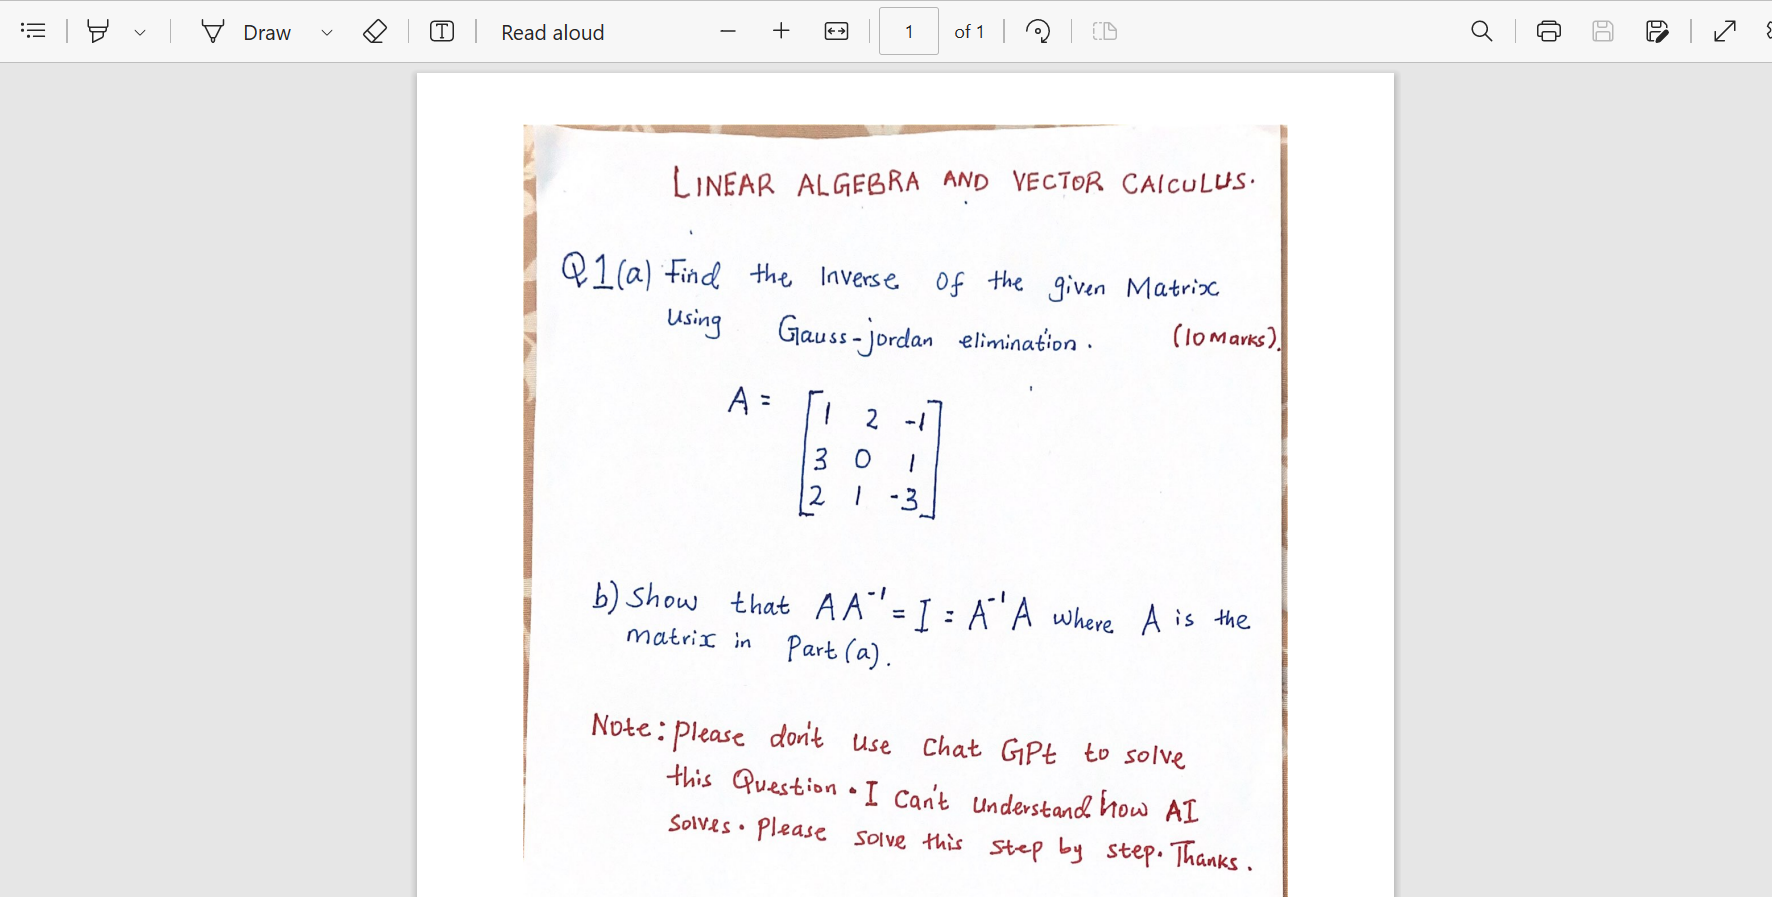 Draw
Read aloud
1 of 1
LINEAR ALGEBRA AND VECTOR CALCULUS.
Q1(a) Find the Inverse of the given Matrix
Using Gauss-jordan elimination. (10 Marks).
A = [1 2 -1
3 0 1
2 1 -3]
b) Show that AA⁻¹ = I = A⁻¹A where A is the
matrix in Part (a).
Note: Please don't use Chat GPt to solve
this Question. I Can't Understand how AI
Solves. Please solve this step by step. Thanks.